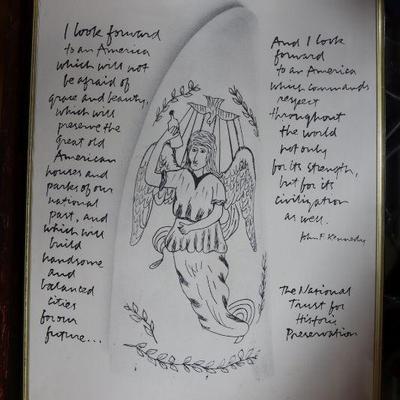 I look forward
to an America
which will not
be afraid of
grace and beauty,
which will
preserve the
great old
American
houses and
parks of our
national
past, and
which will
build
handsome
and
balanced
cities
for our
future...
And I look
forward
to an America
which commands
respect
throughout
the world
not only
for its strength,
but for its
civilization
as well.
John F. Kennedy
The National
Trust for
Historic
Preservation